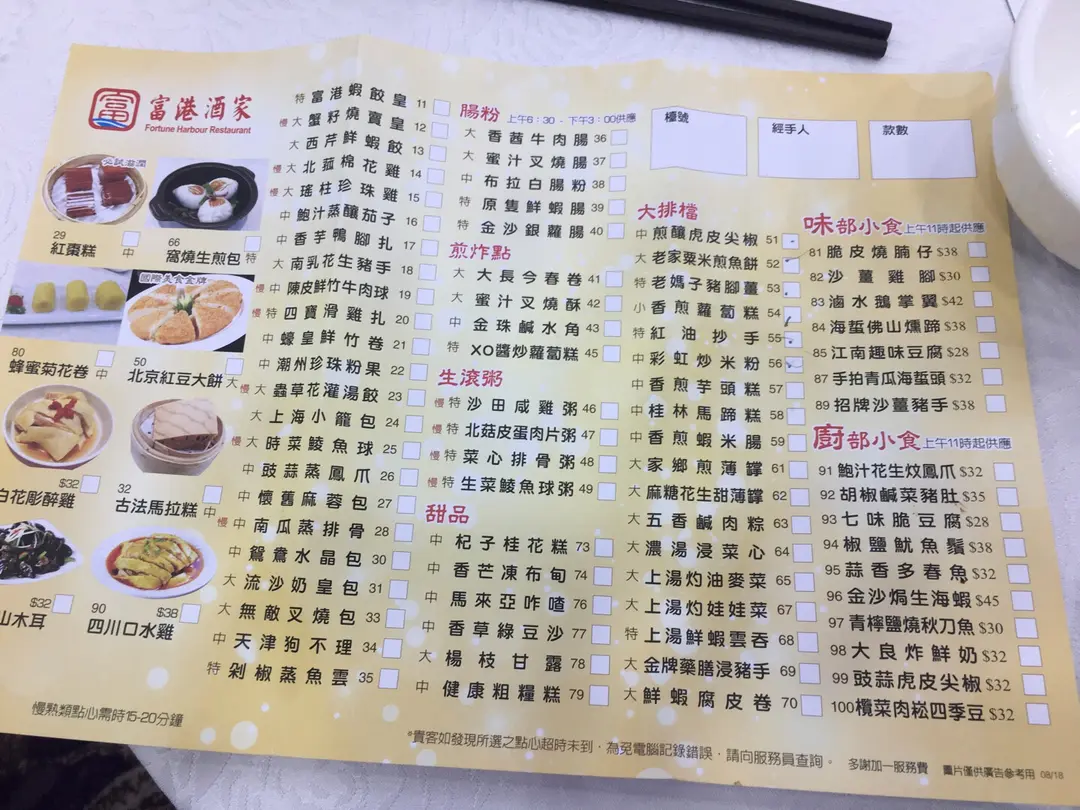 富港酒家
Fortune Harbour Restaurant
必試滋潤
29
紅棗糕 中
66
窩燒生煎包 特
國際美食金牌
80
蜂蜜菊花卷 中
50
北京紅豆大餅 大
$32
白花彫醉雞
32
古法馬拉糕 中
$32
山木耳
90 $38
四川口水雞
慢熟類點心需時15-20分鐘
特 富港蝦餃皇 11
慢 大 蟹籽燒賣皇 12
大 西芹鮮蝦餃 13
慢 大 北菰棉花雞 14
慢 大 瑤柱珍珠雞 15
中 鮑汁蒸釀茄子 16
中 香芋鴨腳扎 17
大 南乳花生豬手 18
慢 中 陳皮鮮竹牛肉球 19
慢 特 四寶滑雞扎 20
中 蠔皇鮮竹卷 21
中 潮州珍珠粉果 22
慢 大 蟲草花灌湯餃 23
大 上海小籠包 24
慢 大 時菜鯪魚球 25
中 豉蒜蒸鳳爪 26
中 懷舊麻蓉包 27
慢 中 南瓜蒸排骨 28
中 鴛鴦水晶包 30
大 流沙奶皇包 31
大 無敵叉燒包 33
中 天津狗不理 34
特 剁椒蒸魚雲 35
腸粉 上午6：30 - 下午3：00供應
大 香茜牛肉腸 36
大 蜜汁叉燒腸 37
中 布拉白腸粉 38
特 原隻鮮蝦腸 39
特 金沙銀蘿腸 40
煎炸點
大 大長今春卷 41
大 蜜汁叉燒酥 42
中 金珠鹹水角 43
特 XO醬炒蘿蔔糕 45
生滾粥
慢 特 沙田咸雞粥 46
慢 特 北菇皮蛋肉片粥 47
慢 特 菜心排骨粥 48
慢 特 生菜鯪魚球粥 49
甜品
中 杞子桂花糕 73
中 香芒凍布甸 74
中 馬來亞咋喳 76
中 香草綠豆沙 77
大 楊枝甘露 78
中 健康粗糧糕 79
檯號
經手人
款數
大排檔
中 煎釀虎皮尖椒 51
大 老家粟米煎魚餅 52
特 老媽子豬腳薑 53
小 香煎蘿蔔糕 54
特 紅油抄手 55
中 彩虹炒米粉 56
中 香煎芋頭糕 57
中 桂林馬蹄糕 58
中 香煎蝦米腸 59
大 家鄉煎薄罉 61
大 麻糖花生甜薄罉 62
大 五香鹹肉粽 63
大 濃湯浸菜心 64
大 上湯灼油麥菜 65
大 上湯灼娃娃菜 67
特 上湯鮮蝦雲吞 68
大 金牌藥膳浸豬手 69
大 鮮蝦腐皮卷 70
味部小食 上午11時起供應
81 脆皮燒腩仔 $38
82 沙薑雞腳 $30
83 滷水鵝掌翼 $42
84 海蜇佛山燻蹄 $38
85 江南趣味豆腐 $28
87 手拍青瓜海蜇頭 $32
89 招牌沙薑豬手 $38
廚部小食 上午11時起供應
91 鮑汁花生炆鳳爪 $32
92 胡椒鹹菜豬肚 $35
93 七味脆豆腐 $28
94 椒鹽魷魚鬚 $38
95 蒜香多春魚 $32
96 金沙焗生海蝦 $45
97 青檸鹽燒秋刀魚 $30
98 大良炸鮮奶 $32
99 豉蒜虎皮尖椒 $32
100 欖菜肉崧四季豆 $32
*貴客如發現所選之點心超時未到，為免電腦記錄錯誤，請向服務員查詢。 多謝加一服務費 圖片僅供廣告參考用 08/18